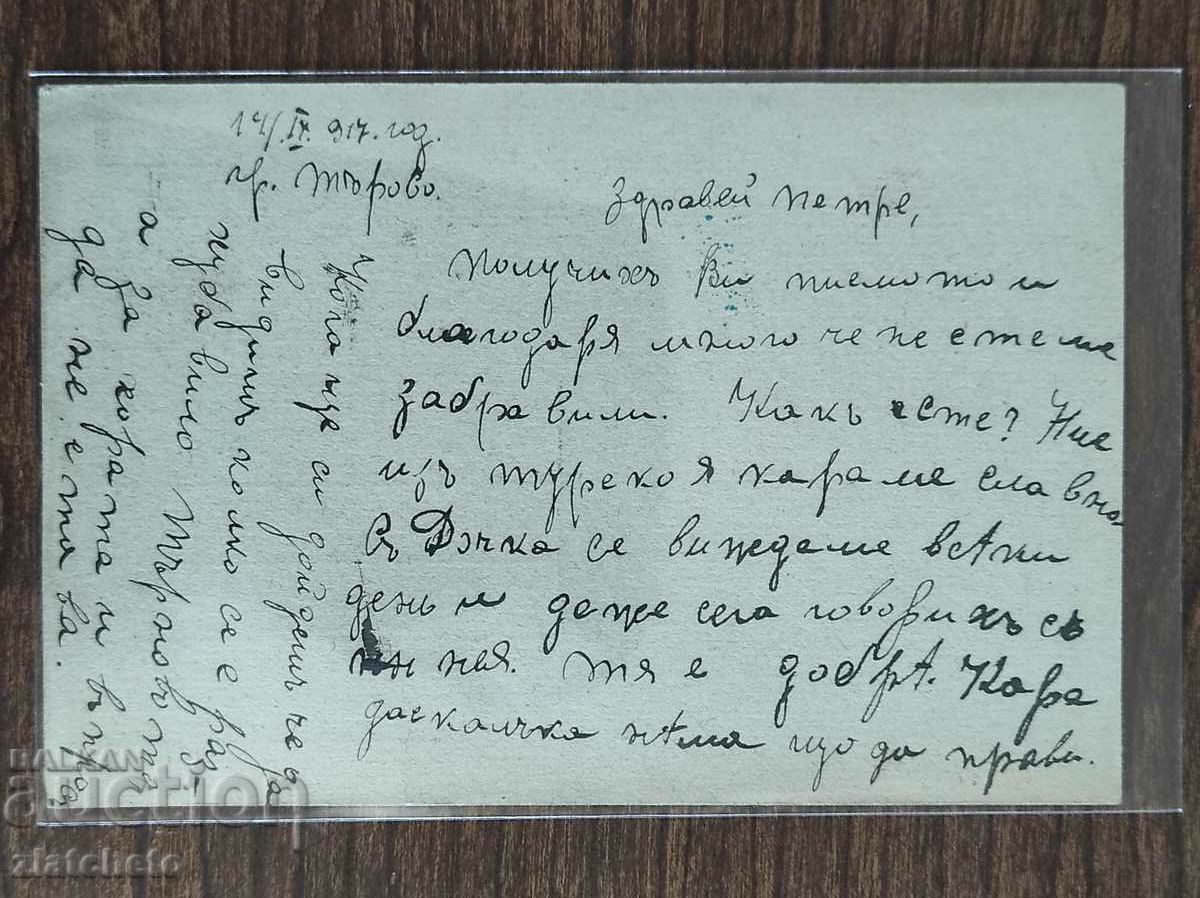 17/.IX.917.год.
гр. Търово.
Здравей Петре,
Получихъ Ви писмото и
благодаря много че не сте ме
забравили. Какъ сте? Ние
изъ турско я караме славно
Съ Дочка се виждаме всѣки
день и даже сега говорихъ съ
нея. Тя е добрѣ. Кара
даскалука нѣма що да прави.
Кога ще си дойдешъ че да
видишъ колко се е раз-
хубавило Търново та
а за хората и въпроса
да не става.
BALKAN
auction
zlatcheto